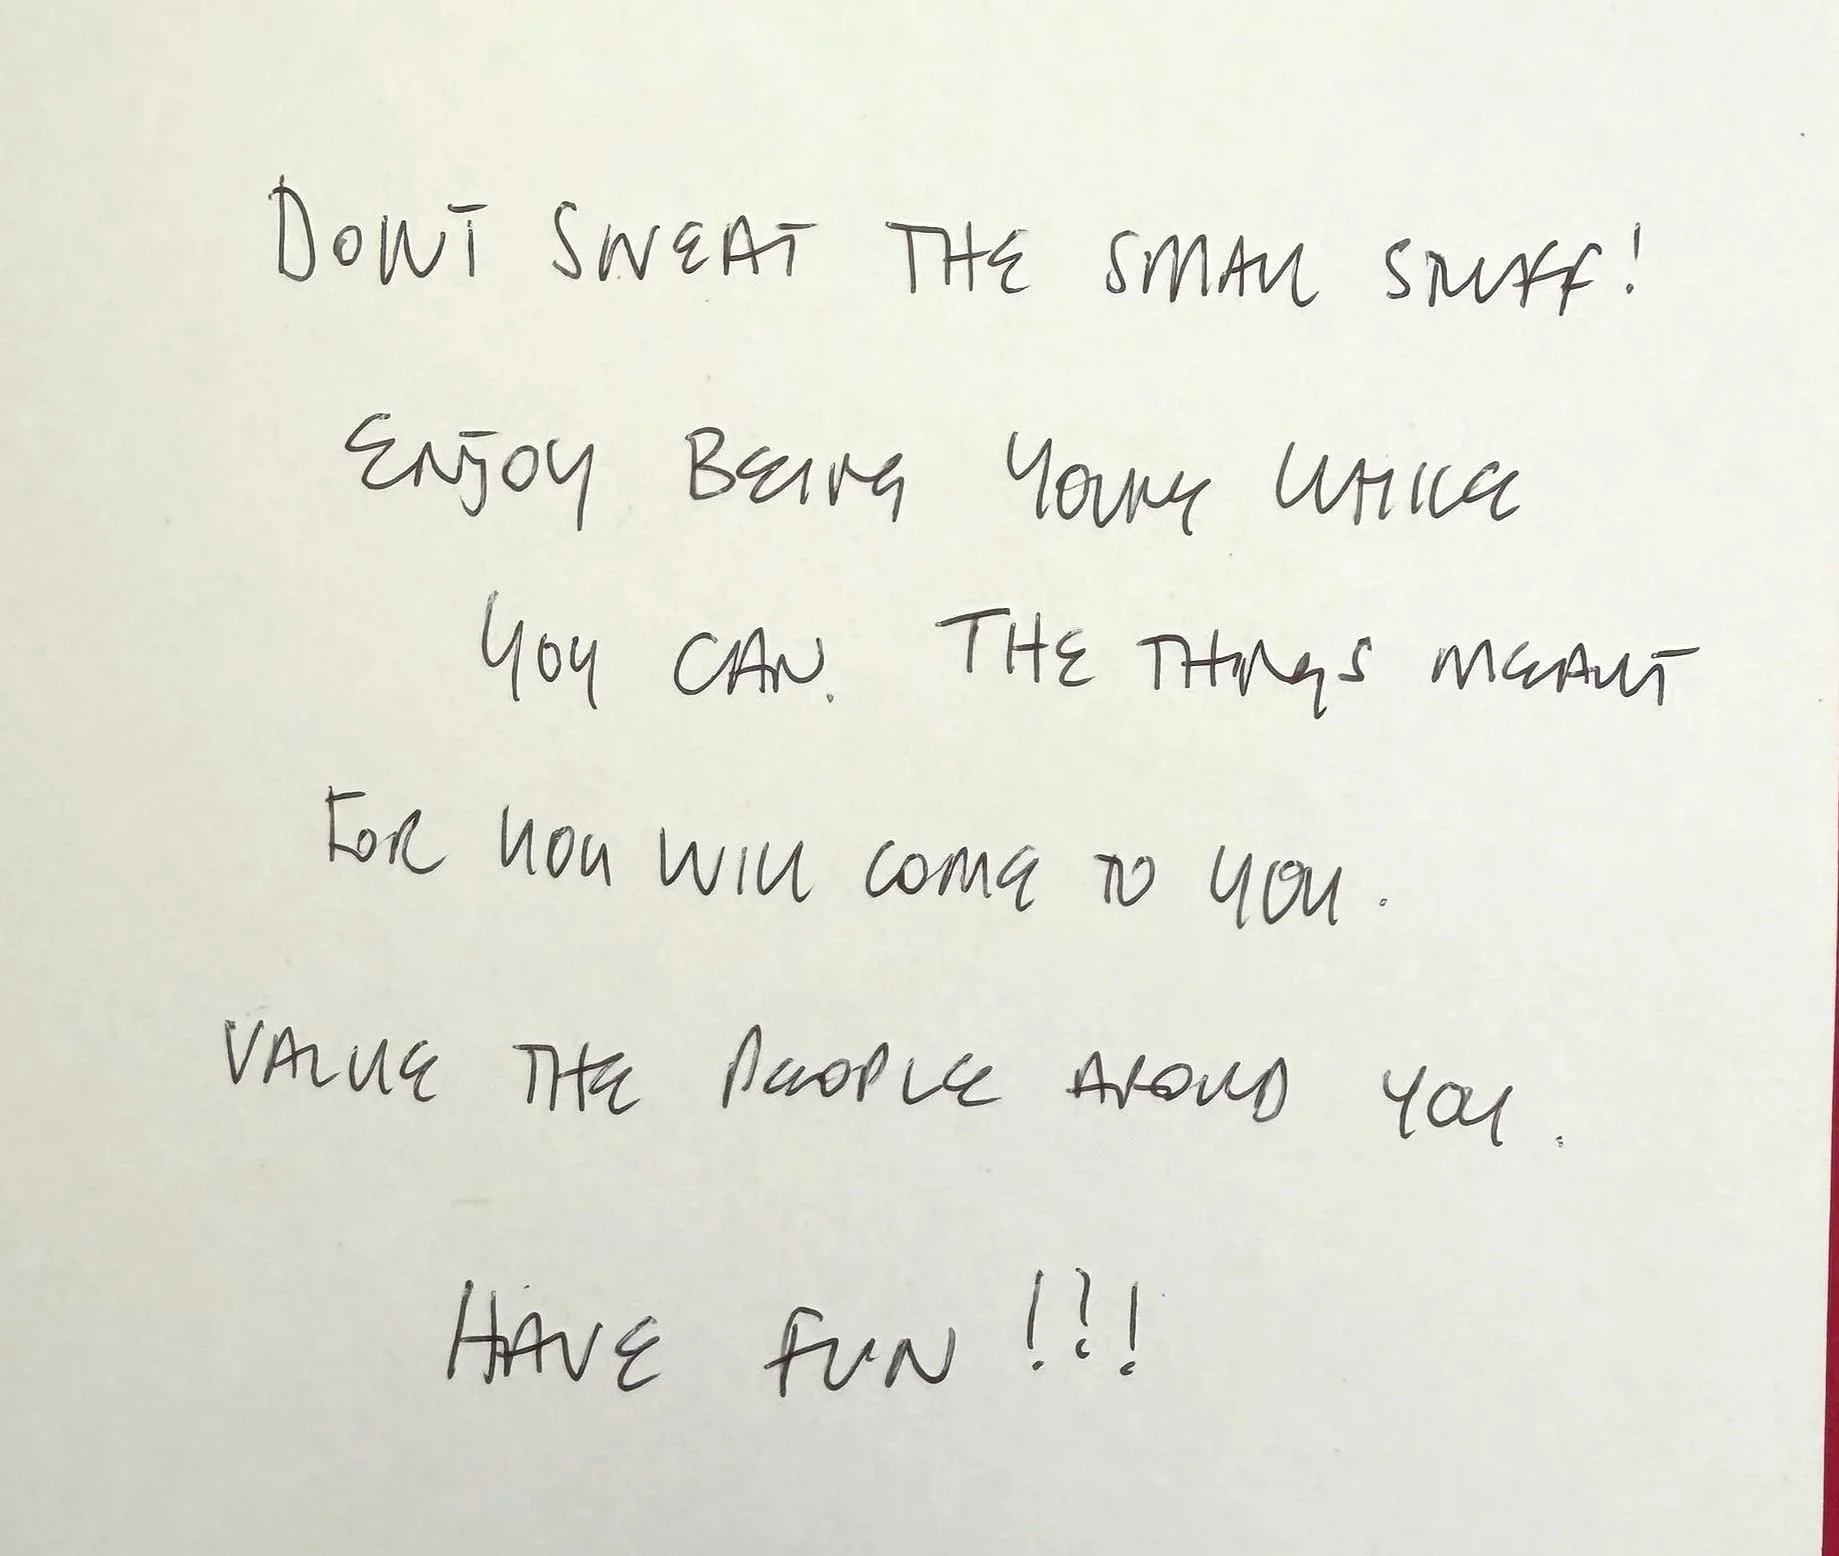 DONT SWEAT THE SMALL STUFF!
ENJOY BEING YOUNG WHILE
YOU CAN. THE THINGS MEANT
FOR YOU WILL COME TO YOU.
VALUE THE PEOPLE AROUND YOU.
HAVE FUN!!!